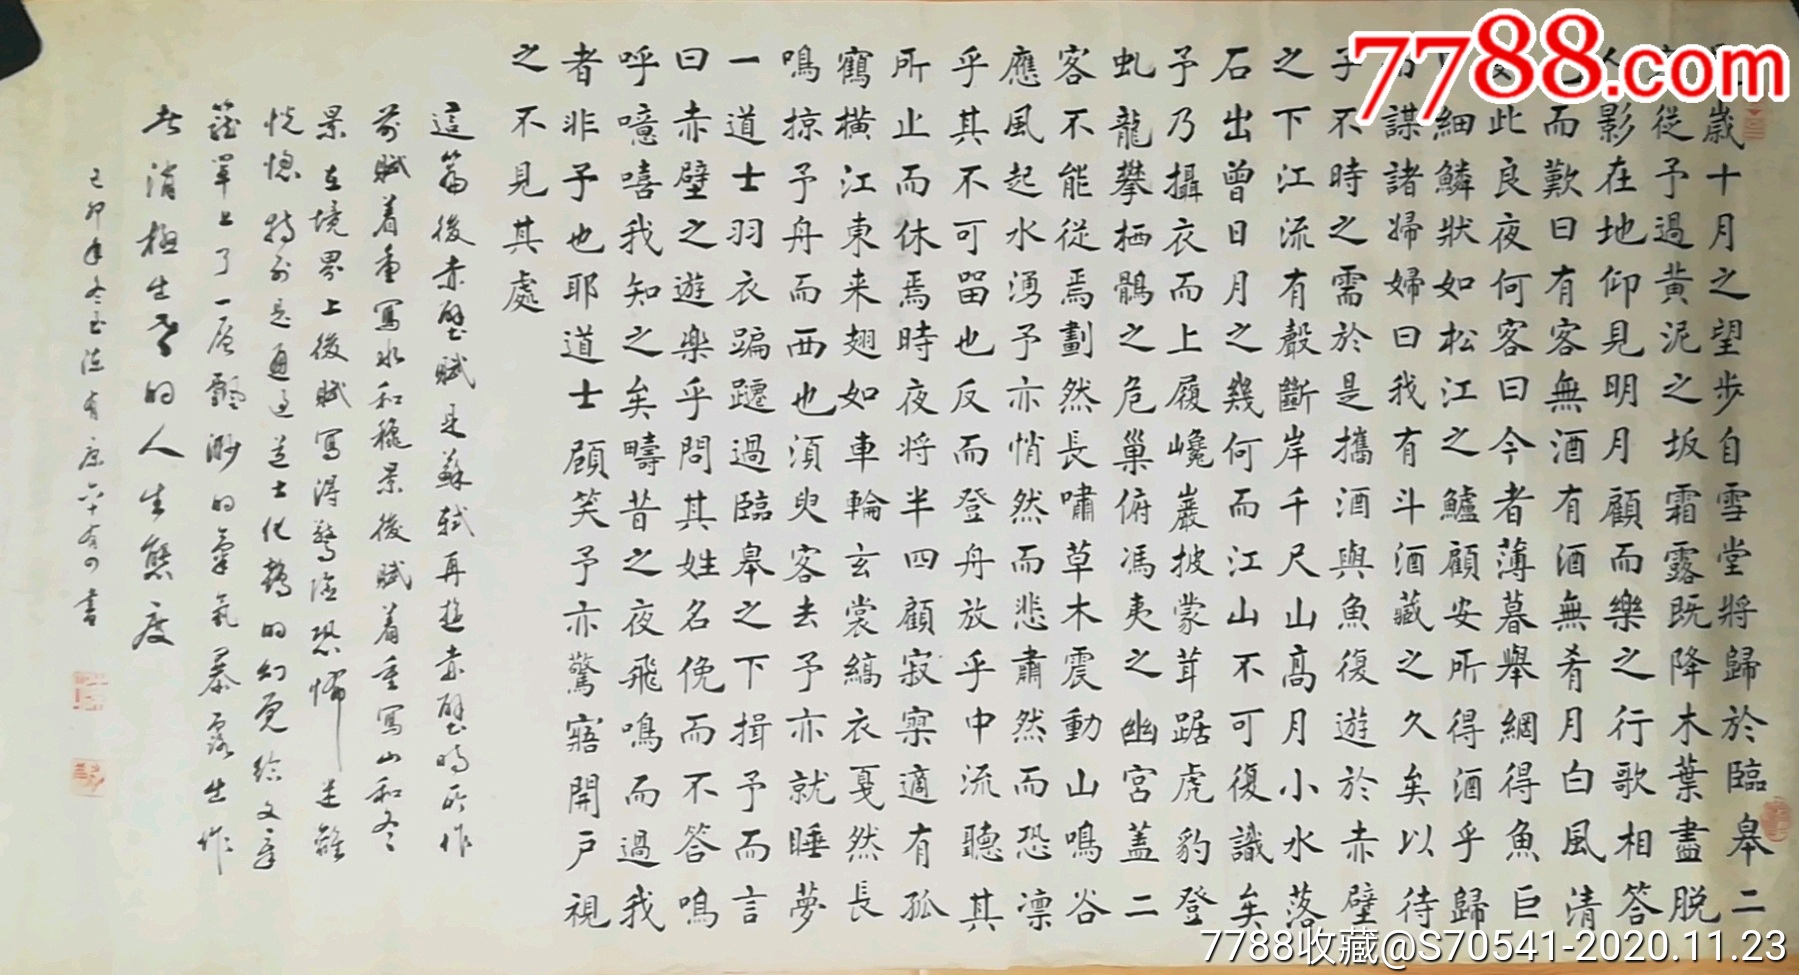 歲十月之望步自雪堂將歸於臨皋二
從予過黃泥之坂霜露既降木葉盡脫
人影在地仰見明月顧而樂之行歌相答
已而歎曰有客無酒有酒無肴月白風清
此良夜何客曰今者薄暮舉網得魚巨
口細鱗狀如松江之鱸顧安所得酒乎歸
而謀諸婦婦曰我有斗酒藏之久矣以待
子不時之需於是攜酒與魚復遊於赤壁
之下江流有聲斷岸千尺山高月小水落
石出曾日月之幾何而江山不可復識矣
予乃攝衣而上履巉巖披蒙茸踞虎豹登
虬龍攀栖鶻之危巢俯馮夷之幽宮蓋二
客不能從焉劃然長嘯草木震動山鳴谷
應風起水湧予亦悄然而悲肅然而恐凛
乎其不可畱也反而登舟放乎中流聽其
所止而休焉時夜将半四顧寂寥適有孤
鶴橫江東来翅如車輪玄裳縞衣戛然長
鳴掠予舟而西也須臾客去予亦就睡夢
一道士羽衣蹁躚過臨皋之下揖予而言
曰赤壁之遊樂乎問其姓名俛而不答鳴
呼噫嘻我知之矣疇昔之夜飛鳴而過我
者非予也耶道士顧笑予亦驚寤開戶視
之不見其處
這篇後赤壁賦是蘇軾再遊赤壁時所作
前賦着重寫水和秋景後賦着重寫山和冬
景在境界上後賦寫得驚險恐怖迷離
恍惚特別是通過道士化鶴的幻覺給文章
籠罩上了一層飄渺的氣氛暴露出作
者消極出世的人生態度
己卯年冬有六十有四書
7788.com
7788收藏@S70541-2020.11.23